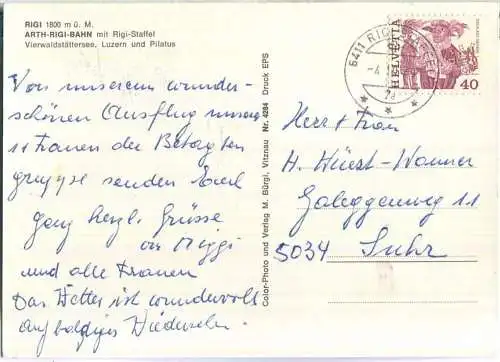 RIGI 1800 m ü. M.
ARTH-RIGI-BAHN mit Rigi-Staffel
Vierwaldstättersee, Luzern und Pilatus
Von unserem wunder-
schönen Ausflug
Frauen der Betagten
gruppe senden Euch
ganz herzl. Grüsse
und alle Frauen
Das Wetter ist wundervoll
auf baldiges Wiedersehn.
Color-Photo und Verlag M. Bürgi, Vitznau Nr. 4284 Druck EPS
6411 RIGI
HELVETIA
40
Herr + Frau
H. Wüest-Wanner
Galeggenweg 11
5034 Suhr